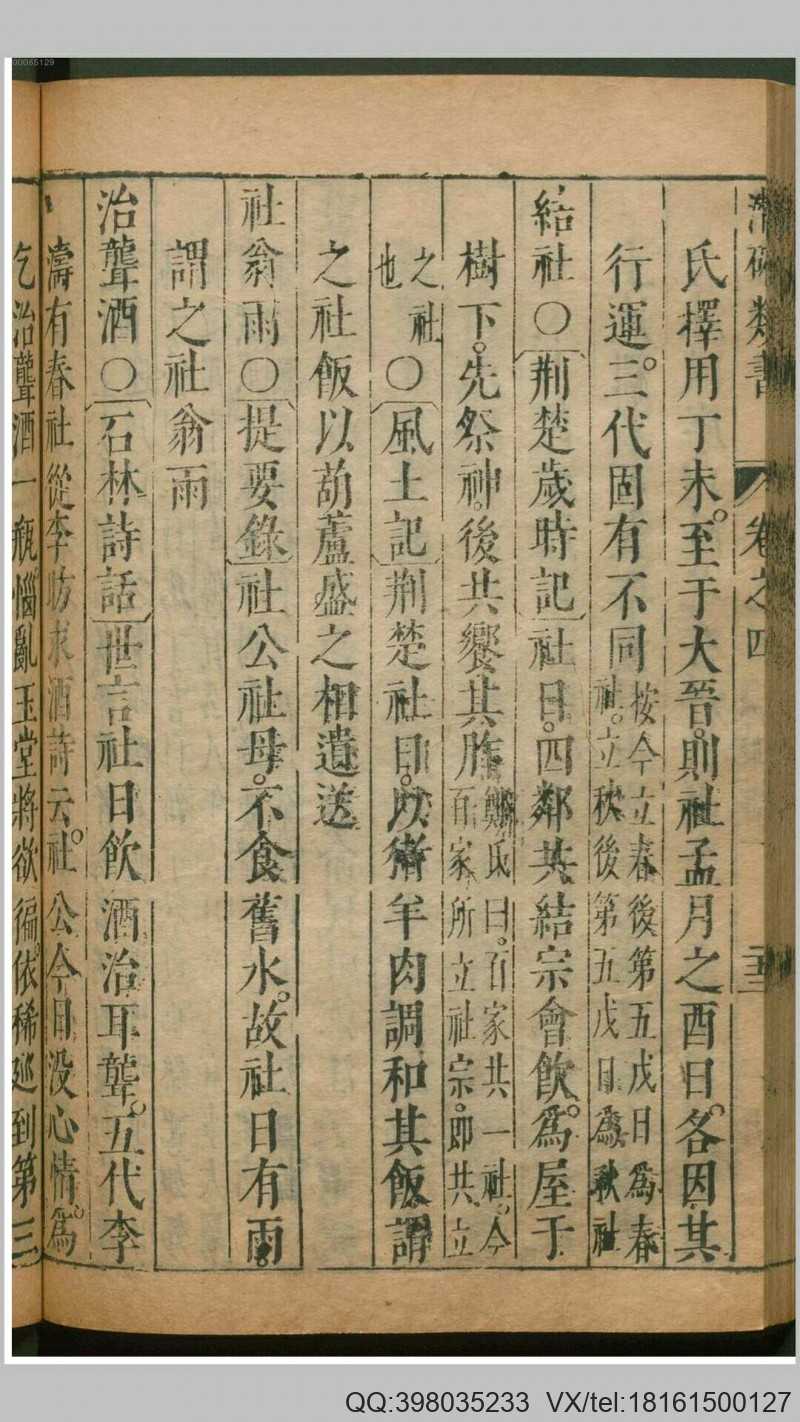 00065129
類書 卷之四
氏擇用丁未至于大晉則社孟月之酉日各因其
行運三代固有不同按今立春後第五戊日爲春社立秋後第五戊日爲秋社
結社〇荆楚歲時記社日四鄰共結宗會飲爲屋于
樹下先祭神後共饗其胙鄭氏曰百家共一社今百家所立社宗即共立
之社也〇風土記荆楚社日以猪羊肉調和其飯謂
之社飯以葫蘆盛之相遺送
社翁雨〇提要錄社公社母不食舊水故社日有雨
謂之社翁雨
治聾酒〇石林詩話世言社日飲酒治耳聾五代李
濤有春社從李昉求酒詩云社公今日没心情爲
乞治聾酒一瓶惱亂玉堂將欲徧依稀廵到第三
QQ:398035233 VX/tel:18161500127